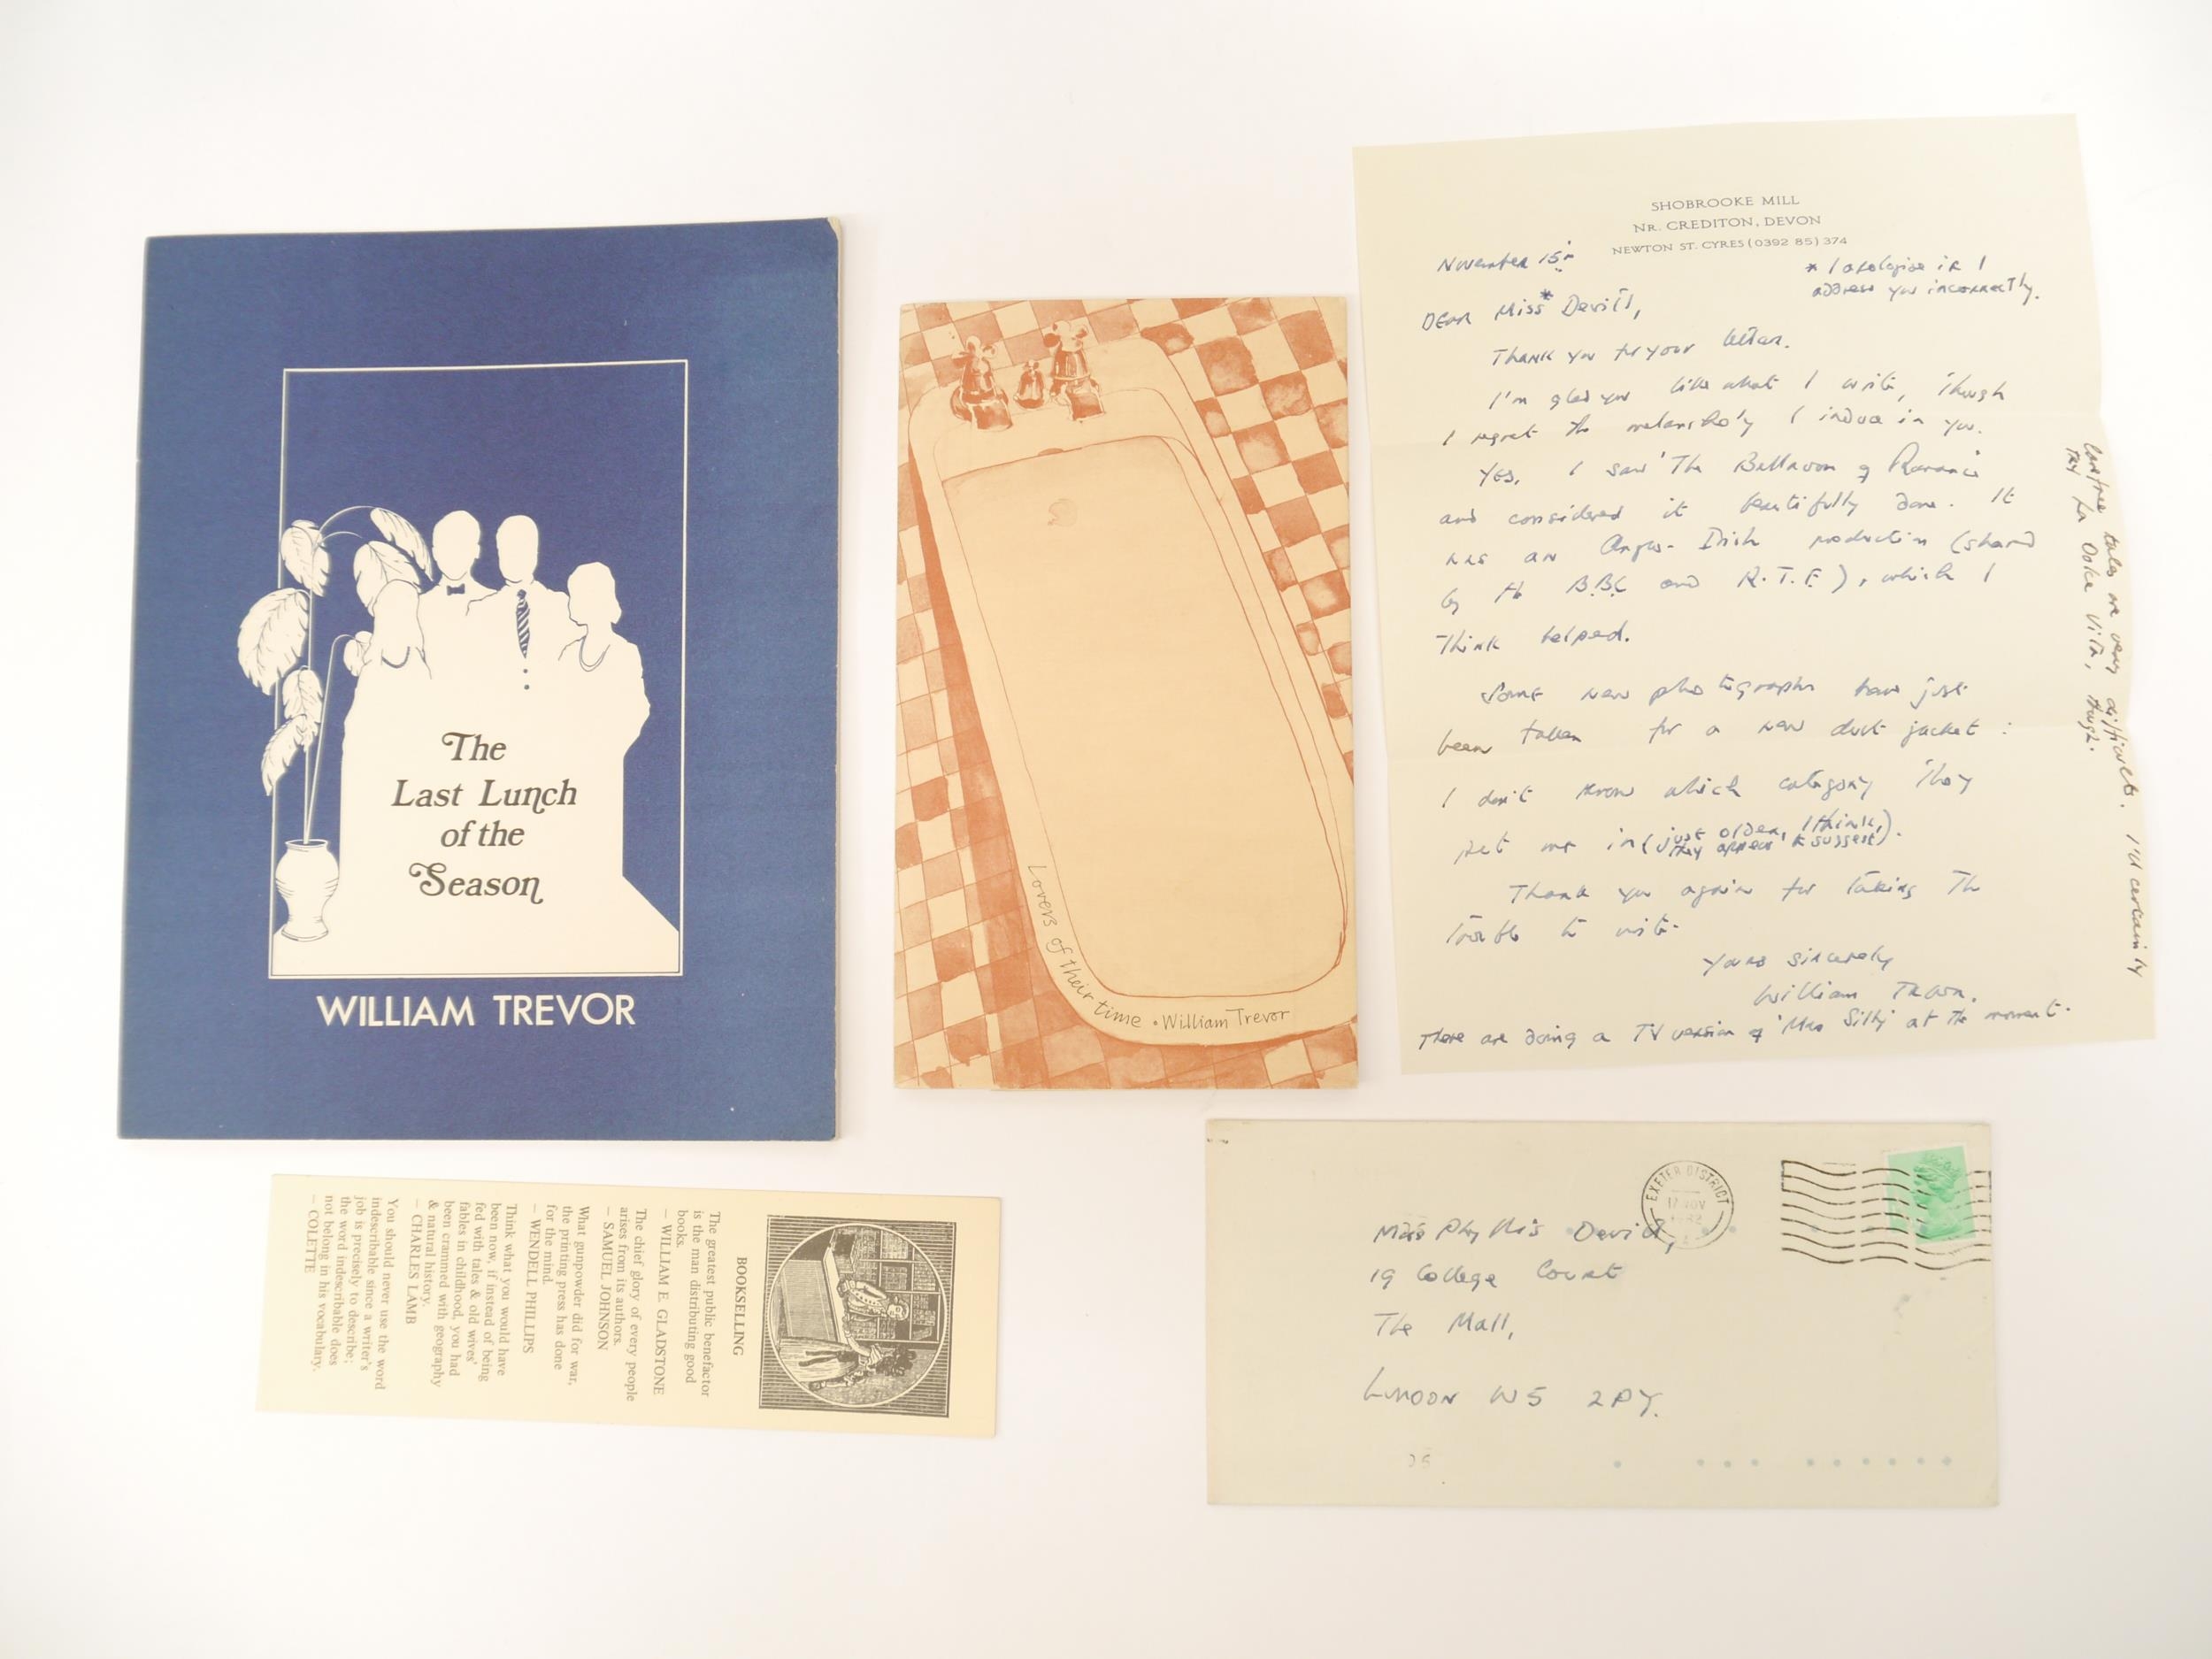 The
Last Lunch
of the
Season
WILLIAM TREVOR
Lovers of their time • William Trevor
SHOBROOKE MILL
NR. CREDITON, DEVON
NEWTON ST. CYRES (0392 85) 374
November 15th
* I apologise if I
address you incorrectly.
Dear Miss* Devitt,
Thank you for your letter.
I'm glad you like what I write, though
I regret the melancholy I induce in you.
Yes, I saw 'The Ballroom of Romance'
and considered it beautifully done. It
was an Anglo-Irish production (shared
by the B.B.C and R.T.E.), which I
think helped.
Some new photographs have just
been taken for a new dust jacket:
I don't know which category they
put me in (just older, I think,
they appear to suggest).
Thank you again for taking the
trouble to write.
Yours sincerely
William Trevor.
There are doing a TV version of 'Mrs Silly' at the moment.
Carefree tales are very difficult. I'll certainly
try La Dolce Vita, though.
BOOKSELLING
The greatest public benefactor
is the man distributing good
books.
– WILLIAM E. GLADSTONE
The chief glory of every people
arises from its authors.
– SAMUEL JOHNSON
What gunpowder did for war,
the printing press has done
for the mind.
– WENDELL PHILLIPS
Think what you would have
been now, if instead of being
fed with tales & old wives'
fables in childhood, you had
been crammed with geography
& natural history.
– CHARLES LAMB
You should never use the word
indescribable since a writer's
job is precisely to describe;
the word indescribable does
not belong in his vocabulary.
– COLETTE
EXETER DISTRICT
17 NOV
1982
Miss Phyllis Devitt,
19 College Court
The Mall,
London W5 2PY.